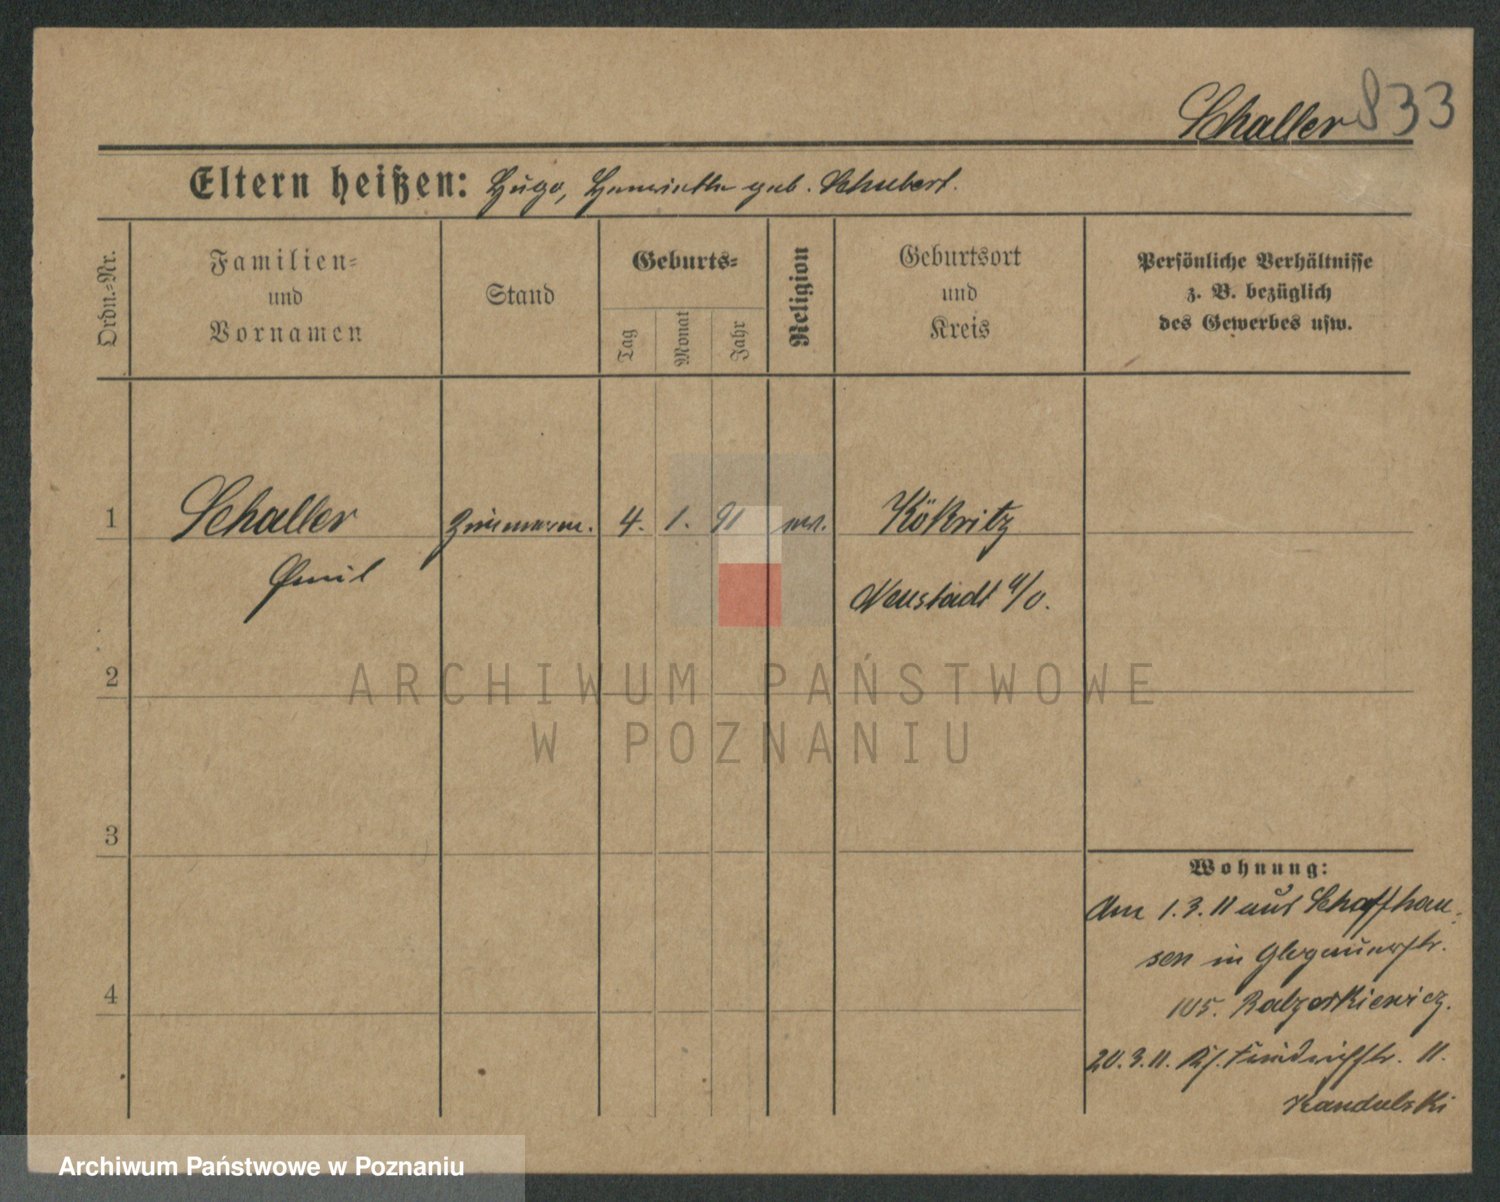 Schaller 833
Eltern heißen: Hugo, Henriette geb. Schubert.
Ordn.-Nr.
Familien-
und
Vornamen
Stand
Geburts-
Tag
Monat
Jahr
Religion
Geburtsort
und
Kreis
Persönliche Verhältnisse
z. B. bezüglich
des Gewerbes usw.
1 Schaller Zimmerm. 4. 1. 91 Kökritz
Emil Neustadt a/O.
ARCHIWUM PAŃSTWOWE
W POZNANIU
2
3
4
Wohnung:
Am 1.3.11 aus Schaffhau-
sen in Glogauerstr.
105.
20.3.11. 11.
Kandulski
Archiwum Państwowe w Poznaniu